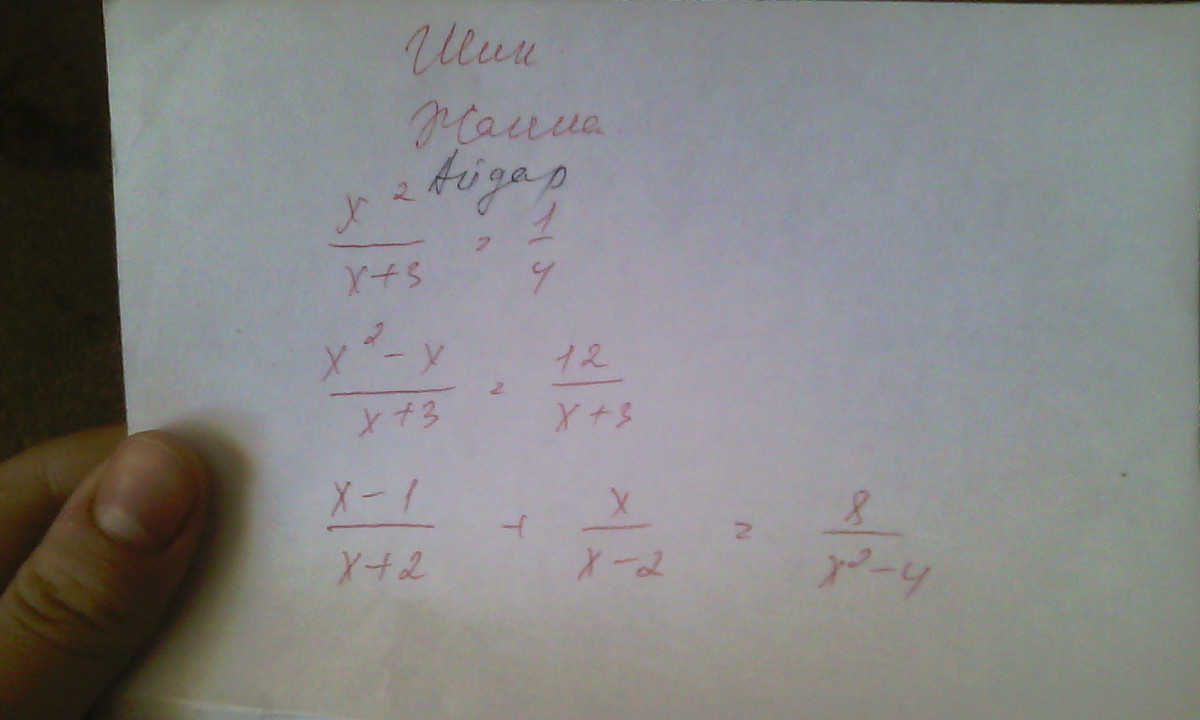 Шин
Жанна
Айдар
x²/(x+3) = 1/4
(x²-x)/(x+3) = 12/(x+3)
(x-1)/(x+2) + x/(x-2) = 8/(x²-4)